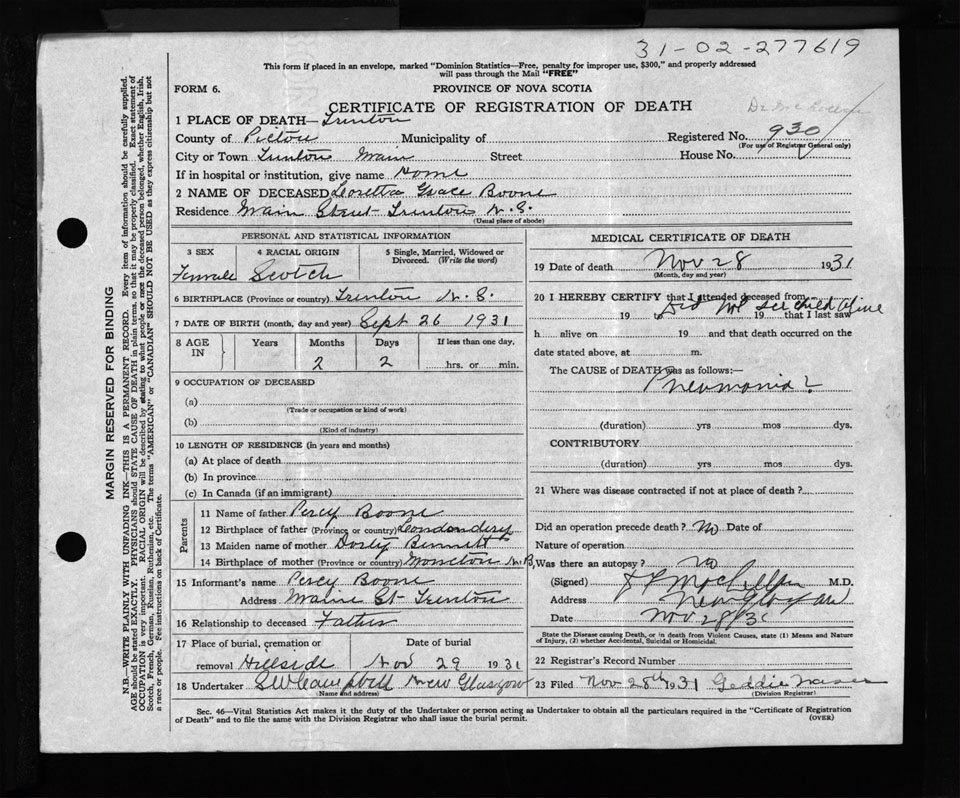 31-02-277619
This form if placed in an envelope, marked "Dominion Statistics—Free, penalty for improper use, $300," and properly addressed
will pass through the Mail "FREE"
FORM 6.
PROVINCE OF NOVA SCOTIA
CERTIFICATE OF REGISTRATION OF DEATH
1 PLACE OF DEATH— Trenton
County of Pictou Municipality of Registered No. 930
(For use of Registrar General only)
City or Town Trenton Main Street House No.
If in hospital or institution, give name Home
2 NAME OF DECEASED Loretta Grace Boone
Residence Main Street Trenton N.S.
(Usual place of abode)
PERSONAL AND STATISTICAL INFORMATION
3 SEX 4 RACIAL ORIGIN 5 Single, Married, Widowed or
Divorced. (Write the word)
Female Scotch
6 BIRTHPLACE (Province or country) Trenton N.S.
7 DATE OF BIRTH (month, day and year) Sept 26 1931
8 AGE Years Months Days If less than one day,
IN 2 2 hrs. or min.
9 OCCUPATION OF DECEASED
(a)
(Trade or occupation or kind of work)
(b)
(Kind of industry)
10 LENGTH OF RESIDENCE (in years and months)
(a) At place of death
(b) In province
(c) In Canada (if an immigrant)
Parents
11 Name of father Percy Boone
12 Birthplace of father (Province or country) Londonderry
13 Maiden name of mother Bennett
14 Birthplace of mother (Province or country) Moncton N.B.
15 Informant's name Percy Boone
Address Main St- Trenton
16 Relationship to deceased Father
17 Place of burial, cremation or Date of burial
removal Hillside Nov 29 1931
18 Undertaker S W Campbell New Glasgow
(Name and address)
MEDICAL CERTIFICATE OF DEATH
19 Date of death Nov 28 1931
(Month, day and year)
20 I HEREBY CERTIFY that I attended deceased from
Did not see child alive
19 to 19 that I last saw
h alive on 19 and that death occurred on the
date stated above, at m.
The CAUSE of DEATH was as follows:—
Pneumonia?
(duration) yrs mos dys.
CONTRIBUTORY
(duration) yrs mos dys.
21 Where was disease contracted if not at place of death?
Did an operation precede death? No Date of
Nature of operation
Was there an autopsy? no
(Signed) M.D.
Address New Glasgow
Date Nov 28/31
State the Disease causing Death, or in death from Violent Causes, state (1) Means and Nature
of Injury, (2) whether Accidental, Suicidal or Homicidal.
22 Registrar's Record Number
23 Filed Nov 28th 1931 Geddie Fraser
(Division Registrar)
Sec. 46—Vital Statistics Act makes it the duty of the Undertaker or person acting as Undertaker to obtain all the particulars required in the "Certificate of Registration
of Death" and to file the same with the Division Registrar who shall issue the burial permit.
(OVER)
MARGIN RESERVED FOR BINDING
N.B.—WRITE PLAINLY WITH UNFADING INK—THIS IS A PERMANENT RECORD. Every item of information should be carefully supplied.
AGE should be stated EXACTLY. PHYSICIANS should STATE CAUSE OF DEATH in plain terms, so that it may be properly classified. Exact statement of
OCCUPATION is very important. RACIAL ORIGIN will be described by stating what people or race the deceased person belonged, whether English, Irish,
Scotch, French, German, Russian, Ruthenian, etc. The terms "AMERICAN" or "CANADIAN" SHOULD NOT BE USED as they express citizenship but not
a race or people. See instructions on back of Certificate.